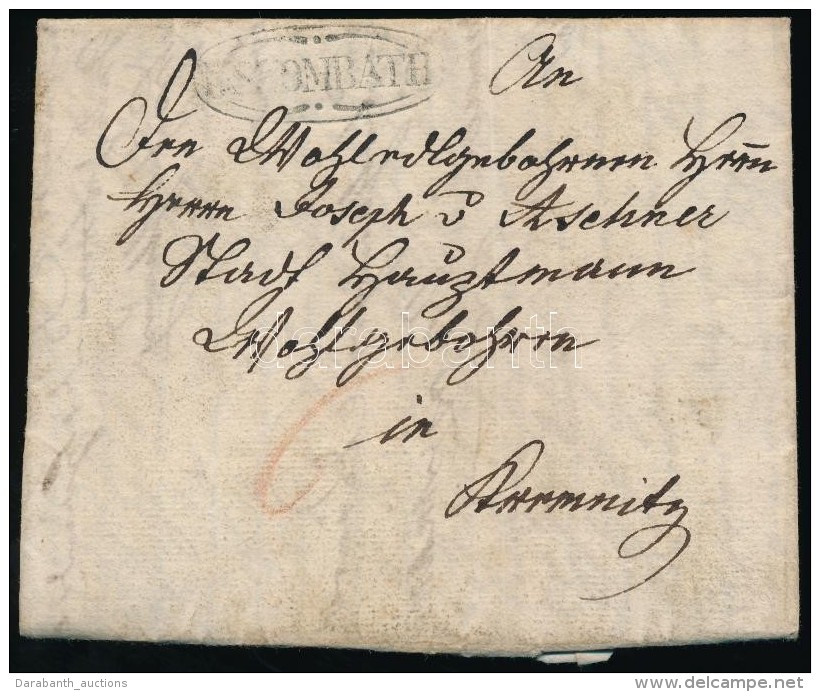 T.SZOMBATH
An
Den Wohledlgebohrnen Herrn
Herrn Joseph v Aschner
Stadt Hauptmann
Wohlgebohren
in
Kremnitz
darabanth
Darabanth_auctions
delcampe.net